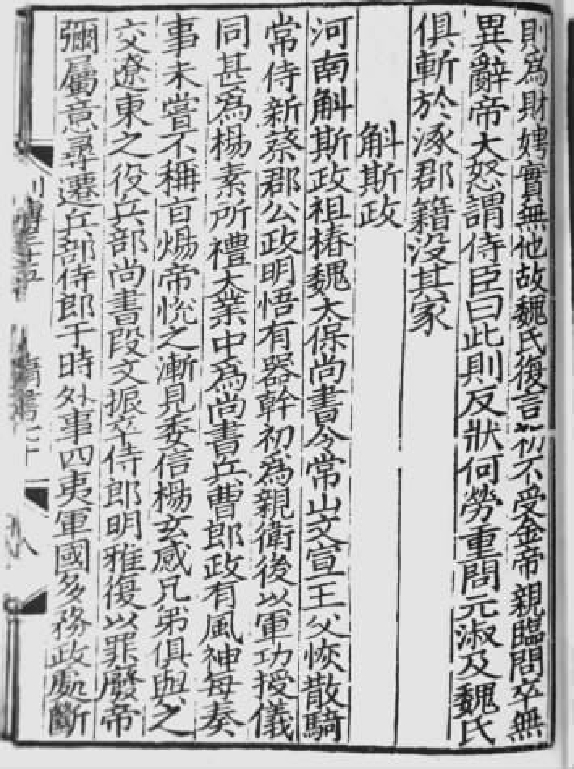 則為財娉實無他故魏氏復言初不受金帝親臨問卒無
異辭帝大怒謂侍臣曰此則反狀何勞重問元淑及魏氏
俱斬於涿郡籍没其家
斛斯政
河南斛斯政祖椿魏太保尚書令常山文宣王父恢散騎
常侍新蔡郡公政明悟有器幹初為親衛後以軍功授儀
同甚為楊素所禮大業中為尚書兵曹郎政有風神每奏
事未嘗不稱旨煬帝悅之漸見委信楊玄感兄弟俱與之
交遼東之役兵部尚書段文振卒侍郎明雅復以罪廢帝
彌屬意尋遷兵部侍郎于時外事四夷軍國多務政處斷